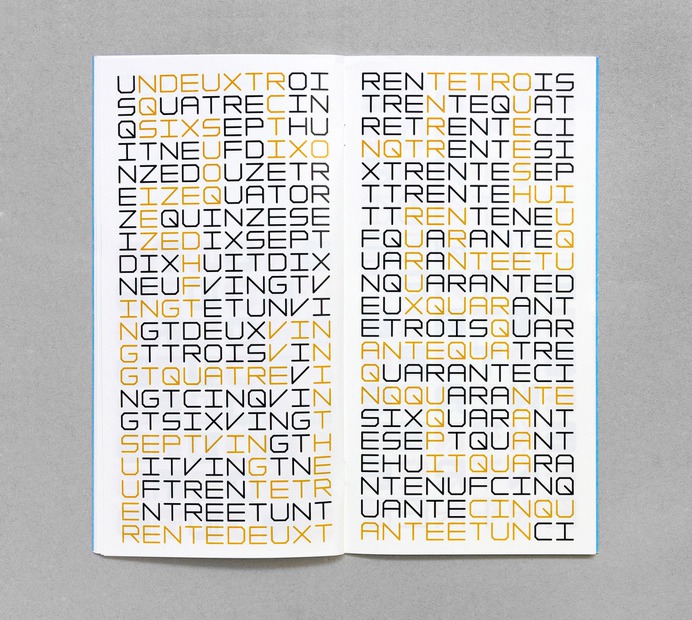 UNDEUXTROI
SQUATRECIN
QSIXSEPTHU
ITNEUFDIXO
NZEDOUZETR
EIZEQUATOR
ZEQUINZESE
IZEDIXSEPT
DIXHUITDIX
NEUFVINGTV
INGTETUNVI
NGTDEUXVIN
GTTROISVIN
GTQUATREVI
NGTCINQVIN
GTSIXVINGT
SEPTVINGTH
UITVINGTNE
UFTRENTETR
ENTREETUNT
RENTEDEUXT
RENTETROIS
TRENTEQUAT
RETRENTECI
NQTRENTESI
XTRENTESEP
TTRENTEHUI
TTRENTENEU
FQUARANTEQ
UARANTEETU
NQUARANTED
EUXQUARANT
ETROISQUAR
ANTEQUATRE
QUARANTECI
NQQUARANTE
SIXQUARANT
ESEPTQUANT
EHUITQUARA
NTENUFCINQ
UANTECINQU
ANTEETUNCI